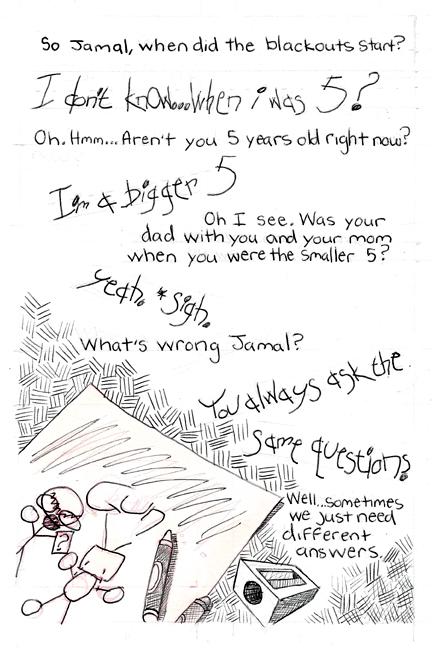 So Jamal, when did the blackouts start?
I don't know...when i was 5?
Oh. Hmm... Aren't you 5 years old right now?
I'm a bigger 5
Oh I see. Was your
dad with you and your mom
when you were the smaller 5?
yeah. *sigh.
What's wrong Jamal?
You always ask the
same questions.
Well..sometimes
we just need
different
answers.
?